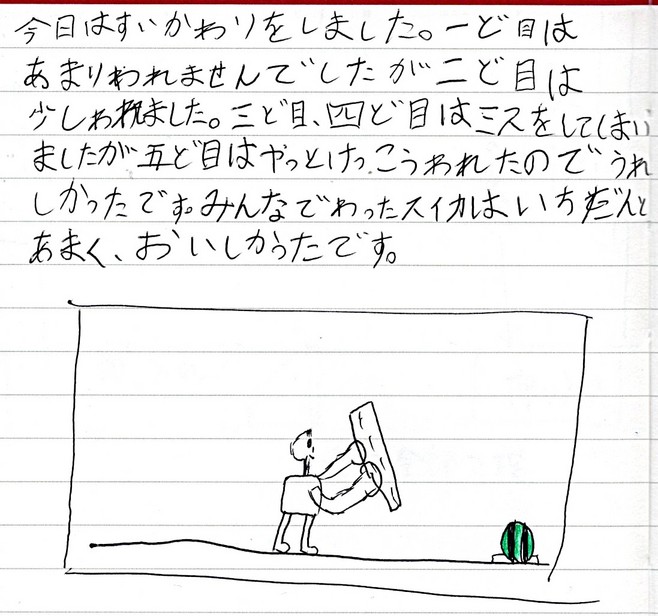 今日はすいかわりをしました。一ど目は
あまりわれませんでしたが二ど目は
少しわれました。三ど目、四ど目はミスをしてしまい
ましたが五ど目はやっとけっこうわれたのでうれ
しかったです。みんなでわったスイカはいちだんと
あまく、おいしかったです。